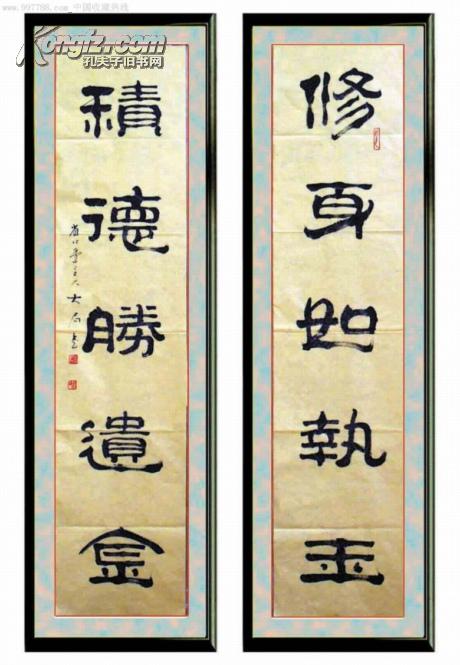 www.997788.com 中国收藏热线
Kongfz.com
孔夫子旧书网
修身如執玉
積德勝遺金
大石